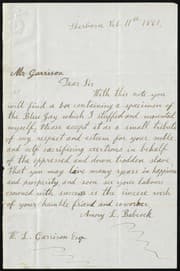 Sherborn Feb. 11th 1861.
Mr Garrison
Dear Sir
With this note you
will find a box containing a specimen of
the Blue Jay which I stuffed and mounted
myself. Please accept it as a small tribute
of my respect and esteem for your noble
and self sacrificing exertions in behalf
of the oppressed and down trodden slave
That you may have many years in happiness
and prosperity and soon see your labours
crowned with success is the sincere wish
of your humble friend and coworker.
L. Babcock
W. L. Garrison Esqr.